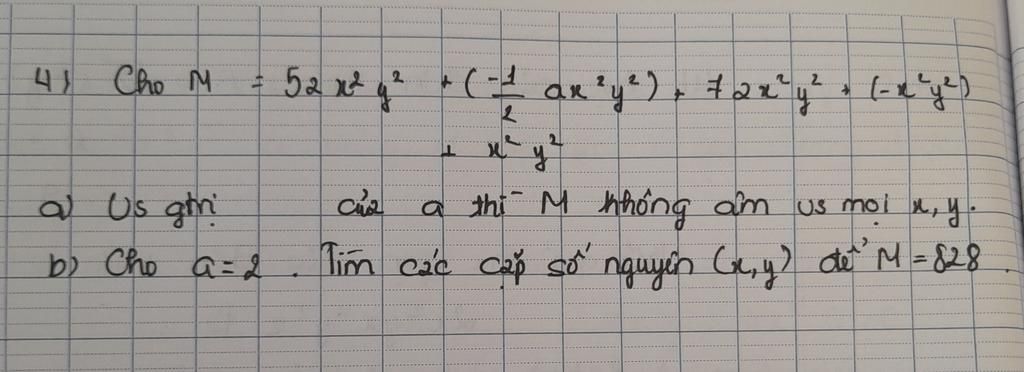 4) Cho M = 52 x² y² + (-1/2 ax²y²) + 72x² y² + (-x²y²)
+ x² y²
a) Vs gtri của a thì M không âm vs mọi x, y.
b) Cho a = 2 . Tìm các cặp số nguyên (x,y) để M = 828